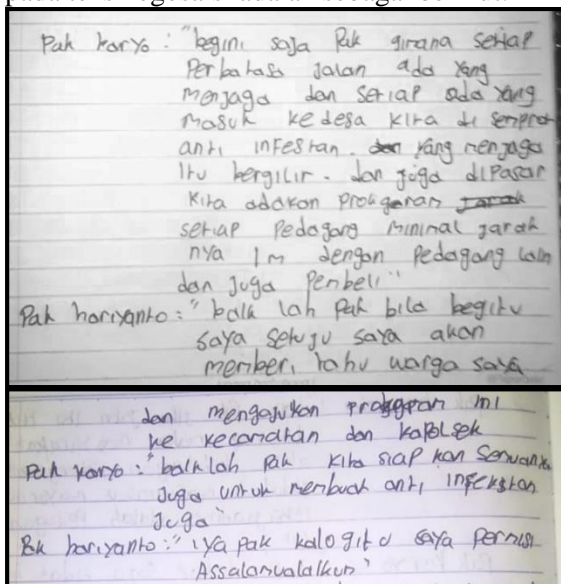 Pak Karyo : "begini saja Pak gimana setiap
Perbatasa Jalan ada yang
menjaga dan setiap ada yang
masuk kedesa kita di semprot
anti infestan. dan yang menjaga
Itu bergilir. dan juga dipasar
kita adakan program jarak
setiap Pedagang minimal jarak
nya 1 m dengan Pedagang lain
dan juga Pembeli"
Pak hariyanto : "baik lah Pak bila begitu
saya setuju saya akan
memberi tahu warga saya
dan mengajukan program ini
ke kecamatan dan kapolsek
Pak karyo : "baiklah Pak kita siap kan semuanya
Juga untuk membuat anti infekstan
Juga"
Pak hariyanto : "iya pak kalo gitu saya permisi
Assalamualaikum"